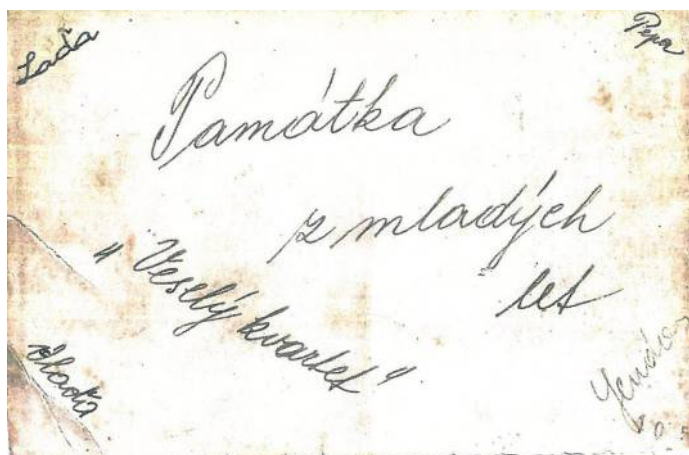 Laďa
Pepa
Památka
z mladých
let
„Veselý kvartet"
Vlaďa